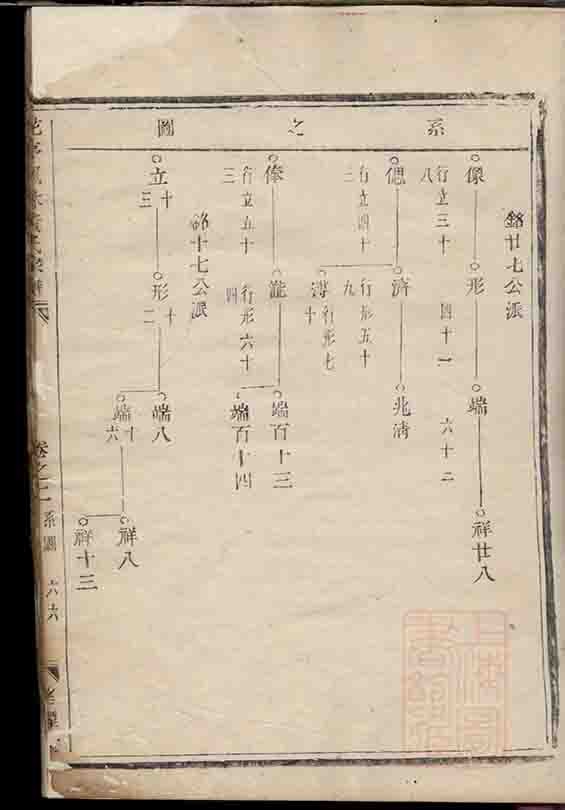 系之圖
銘廿七公派
傑
行立三十八
形
四十一
端
六十二
祥廿八
偲
行立四十二
濟
行形五十九
行形七十
兆清
俸
行立五十三
瀧
行形六十四
端百十三
端百十四
銘十七公派
立十三
形十二
端八
端十六
祥八
祥十三
卷之二
系圖
六六